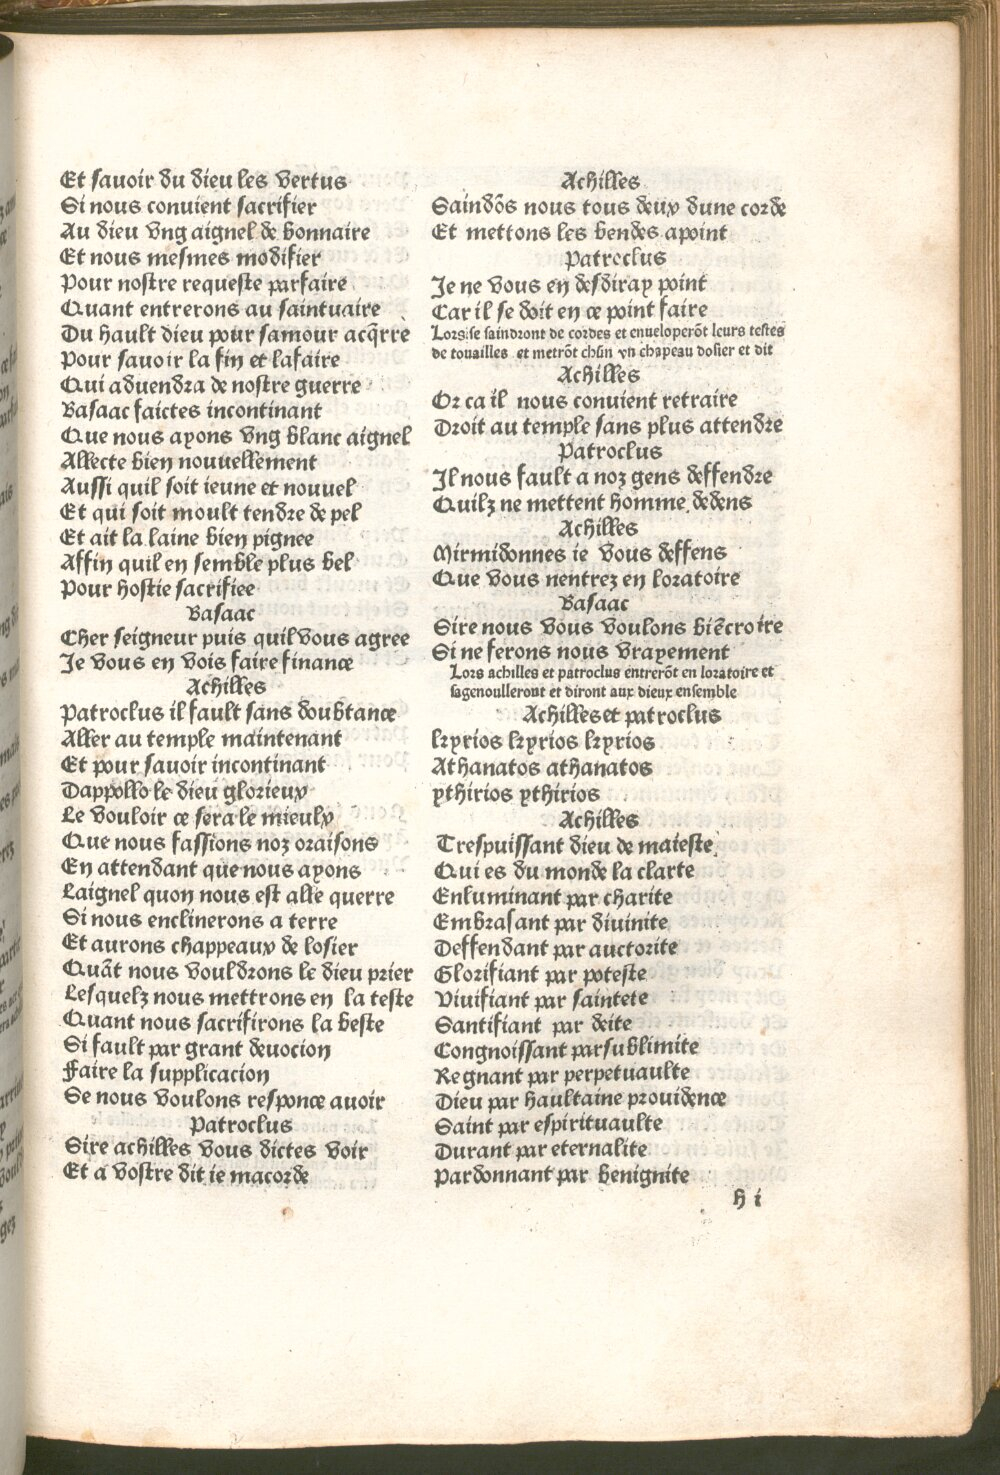 Et sauoir du dieu les vertus
Si nous conuient sacrifier
Au dieu vng aignel de bonnaire
Et nous mesmes modifier
Pour nostre requeste parfaire
Quant entrerons au saintuaire
Du hault dieu pour samour acq̄rre
Pour sauoir la fin et lafaire
Qui aduendra de nostre guerre
Basaac faictes incontinant
Que nous ayons vng blanc aignel
Allecte bien nouuellement
Aussi quil soit ieune et nouuel
Et qui soit moult tendre de pel
Et ait la laine bien pignee
Affin quil en semble plus bel
Pour hostie sacrifiee
Basaac
Cher seigneur puis quil vous agree
Je vous en vois faire finance
Achilles
Patroclus il fault sans doubtance
Aller au temple maintenant
Et pour sauoir incontinant
Dappollo le dieu glorieux
Le vouloir ce sera le mieulx
Que nous fassions noz oraisons
En attendant que nous ayons
Laignel quon nous est alle querre
Si nous enclinerons a terre
Et aurons chappeaux de losier
Quāt nous vouldrons le dieu prier
Lesquelz nous mettrons en la teste
Quant nous sacrifirons la beste
Si fault par grant deuocion
Faire la supplicacion
Se nous voulons responce auoir
Patroclus
Sire achilles vous dictes voir
Et a vostre dit ie macorde
Achilles
Saindōs nous tous deux dune corde
Et mettons les bendes apoint
Patroclus
Je ne vous en desdiray point
Car il se doit en ce point faire
Lors se saindront de cordes et enueloperōt leurs testes
de touailles et metrōt chūn vn chapeau dosier et dit
Achilles
Or ca il nous conuient retraire
Droit au temple sans plus attendre
Patroclus
Il nous fault a noz gens deffendre
Quilz ne mettent homme dedens
Achilles
Mirmidonnes ie vous deffens
Que vous nentrez en loratoire
Basaac
Sire nous vous voulons biē croire
Si ne ferons nous vrayement
Lors achilles et patroclus entrerōt en loratoire et
sagenoulleront et diront aux dieux ensemble
Achilles et patroclus
kyrios kyrios kyrios
Athanatos athanatos
ythirios ythirios
Achilles
Trespuissant dieu de maieste
Qui es du monde la clarte
Enluminant par charite
Embrasant par diuinite
Deffendant par auctorite
Glorifiant par poteste
Viuifiant par saintete
Santifiant par deite
Congnoissant par sublimite
Regnant par perpetuaulte
Dieu par haultaine prouidence
Saint par espirituaulte
Durant par eternalite
Pardonnant par benignite
h i